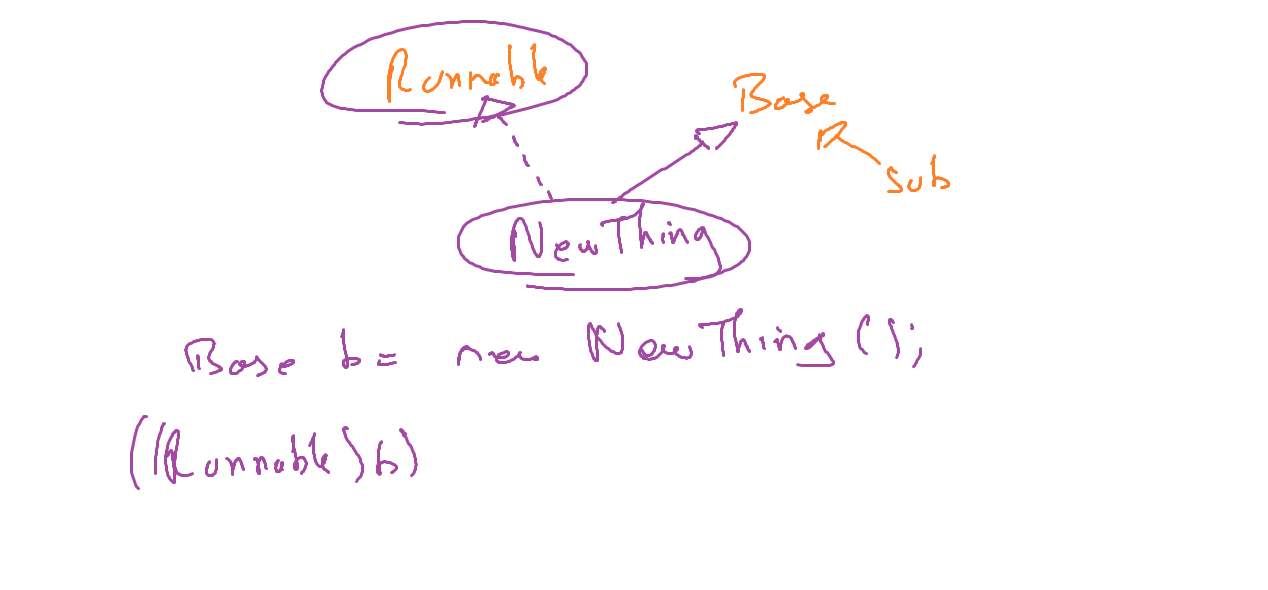 Runnable
Base
Sub
NewThing
Base b = new NewThing();
((Runnable)b)